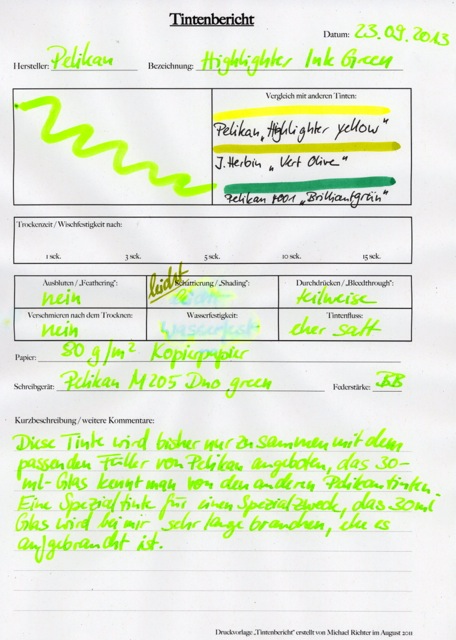 Tintenbericht
Datum: 23.09.2013
Hersteller: Pelikan Bezeichnung: Highlighter Ink Green
Vergleich mit anderen Tinten:
Pelikan „Highlighter yellow“
J. Herbin „Vert Olive“
Pelikan 4001 „Brillantgrün“
Trockenzeit / Wischfestigkeit nach:
1 sek. 3 sek. 5 sek. 10 sek. 15 sek.
Ausbluten / „Feathering“: Schattierung / „Shading“: Durchdrücken / „Bleedthrough“:
nein leicht teilweise
Verschmieren nach dem Trocknen: Wasserfestigkeit: Tintenfluss:
nein wasserfest eher satt
Papier: 80 g/m² Kopierpapier
Schreibgerät: Pelikan M205 Duo green Federstärke: BB
Kurzbeschreibung / weitere Kommentare:
Diese Tinte wird bisher nur zusammen mit dem
passenden Füller von Pelikan angeboten, das 30-
ml-Glas kennt man von den anderen Pelikantinten.
Eine Spezialtinte für einen Spezialzweck, das 30ml
Glas wird bei mir sehr lange brauchen, ehe es
aufgebraucht ist.
Druckvorlage „Tintenbericht“ erstellt von Michael Richter im August 2011